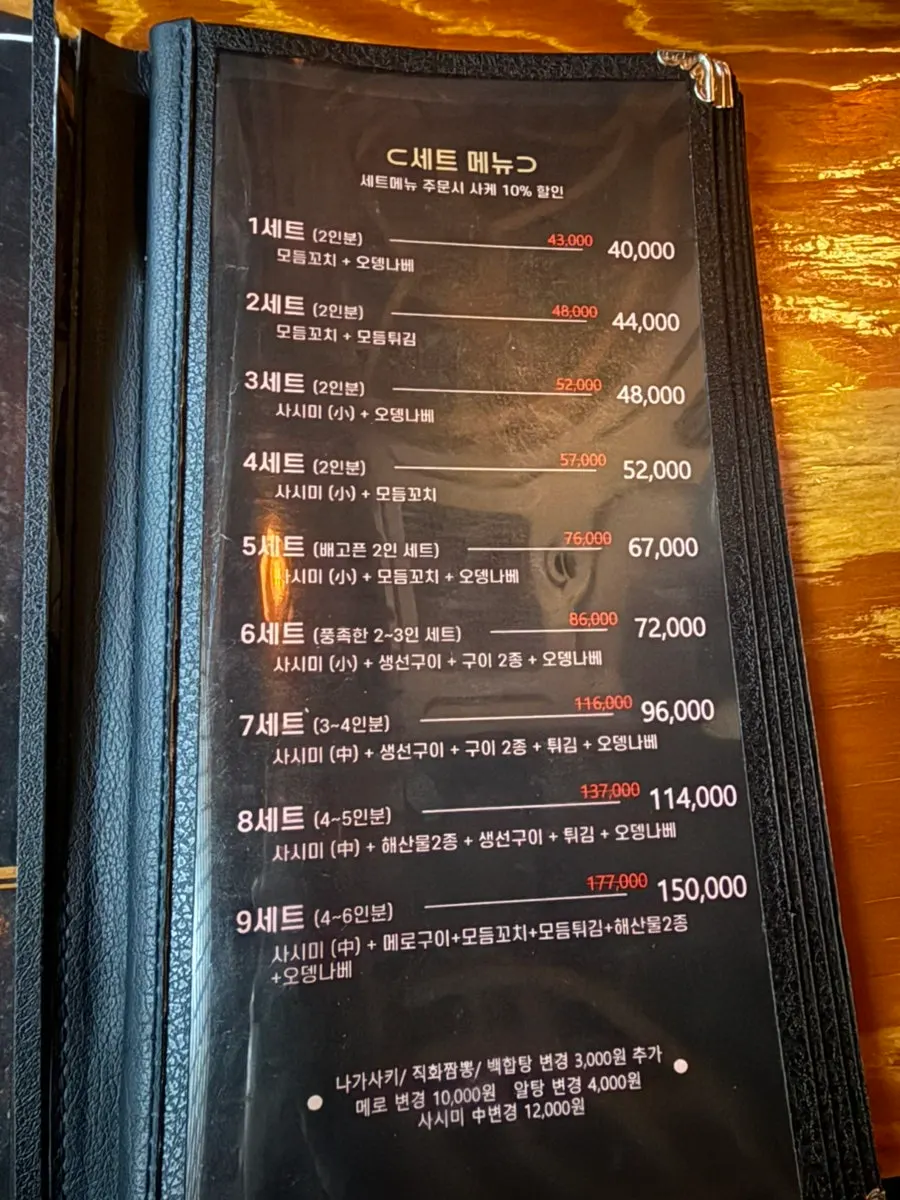 ⊂세트 메뉴⊃
세트메뉴 주문시 사케 10% 할인
1세트 (2인분) 43,000 40,000
모듬꼬치 + 오뎅나베
2세트 (2인분) 48,000 44,000
모듬꼬치 + 모듬튀김
3세트 (2인분) 52,000 48,000
사시미 (小) + 오뎅나베
4세트 (2인분) 57,000 52,000
사시미 (小) + 모듬꼬치
5세트 (배고픈 2인 세트) 76,000 67,000
사시미 (小) + 모듬꼬치 + 오뎅나베
6세트 (풍족한 2~3인 세트) 86,000 72,000
사시미 (小) + 생선구이 + 구이 2종 + 오뎅나베
7세트 (3~4인분) 116,000 96,000
사시미 (中) + 생선구이 + 구이 2종 + 튀김 + 오뎅나베
8세트 (4~5인분) 137,000 114,000
사시미 (中) + 해산물2종 + 생선구이 + 튀김 + 오뎅나베
9세트 (4~6인분) 177,000 150,000
사시미 (中) + 메로구이+모듬꼬치+모듬튀김+해산물2종
+오뎅나베
나가사키/ 직화짬뽕/ 백합탕 변경 3,000원 추가
메로 변경 10,000원 알탕 변경 4,000원
사시미 中변경 12,000원